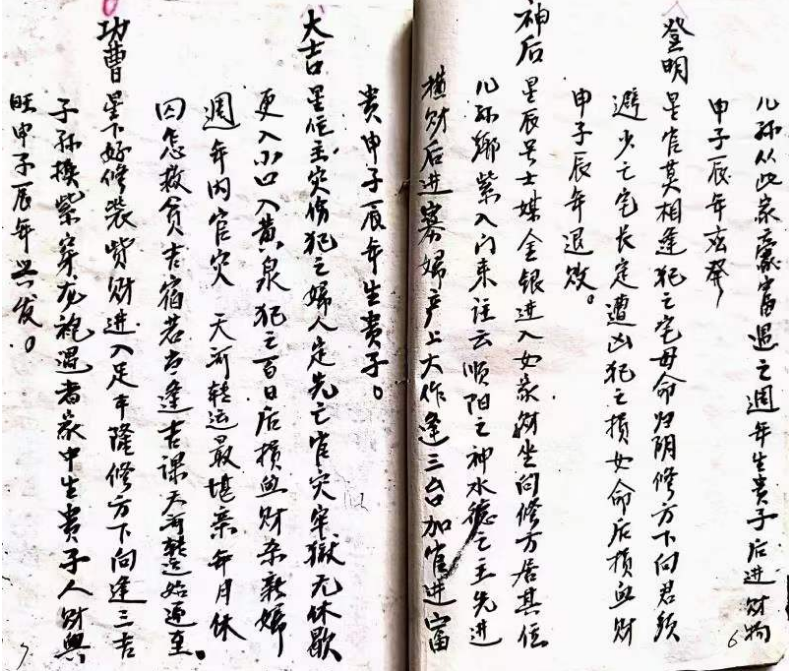 儿孙从此家豪富遇之週年生贵子后进财物
甲子辰年发
登明
星官莫相逢犯之宅母命归阴修方下向君须
避少亡宅长定遭凶犯之损女命后损血财
甲子辰年退败。
神后
星辰号士媒金银进入女家财坐向修方居其位
儿孙挪紫入门来注云顺阳之神水德之主先进
横财后进寡妇产上大作逢三台加官进富
贵甲子辰年生贵子。
大吉
星位主灾伤犯之妇人定先亡官灾牢狱无休歇
更入小口入黄泉犯之百日后损血财杀新妇
週年内官灾 天河转运最堪亲年月休
囚怎救贫吉宿若当逢吉课天河转运始通至。
功曹
星下好修装赀财进入足丰隆修方下向逢三吉
子孙换紫穿龙袍遇者家中生贵子人财兴
旺甲子辰年兴发。
6
7